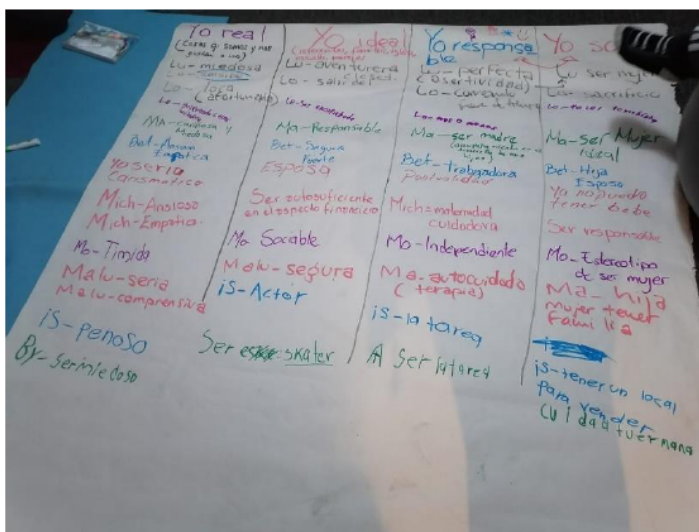 Yo real
(cosas q somos y nos
Lu-miedosa
Lo-loca
(afortunada)
MA-cariñosa y
Miedosa
Bet-Ansiosa
Empatica
Yo seria
Carismatico
Mich-Ansioso
Mich-Empatia
Mo-Timida
Malu-seria
Malu-comprensiva
iS-penoso
By-Ser miedoso
Yo ideal
Lu-aventurera
Lo-salir del closet
Ma-Responsable
Bet-Segura
Fuerte
ESPOSA
Ser autosuficiente
en el aspecto financiero
Mo Sociable
Malu-segura
iS-Actor
Ser skater
Yo responsa
ble
Lu-perfecta
(asertividad)
Lo-
Ma-ser madre
Bet-trabajadora
Mich=maternidad
cuidadora
Mo-Independiente
Ma-autocuidado
(terapia)
iS-la tarea
A Ser la tarea
Yo
Lu ser mujer
sacrificio
Ma-ser Mujer
Bet-Hija
Esposa
Ya no puedo
tener bebe
Ser responsable
Mo-Estereotipo
de ser mujer
Ma-hija
Mujer tener
familia
iS-tener un local
para vender
Cuida a tu ermana